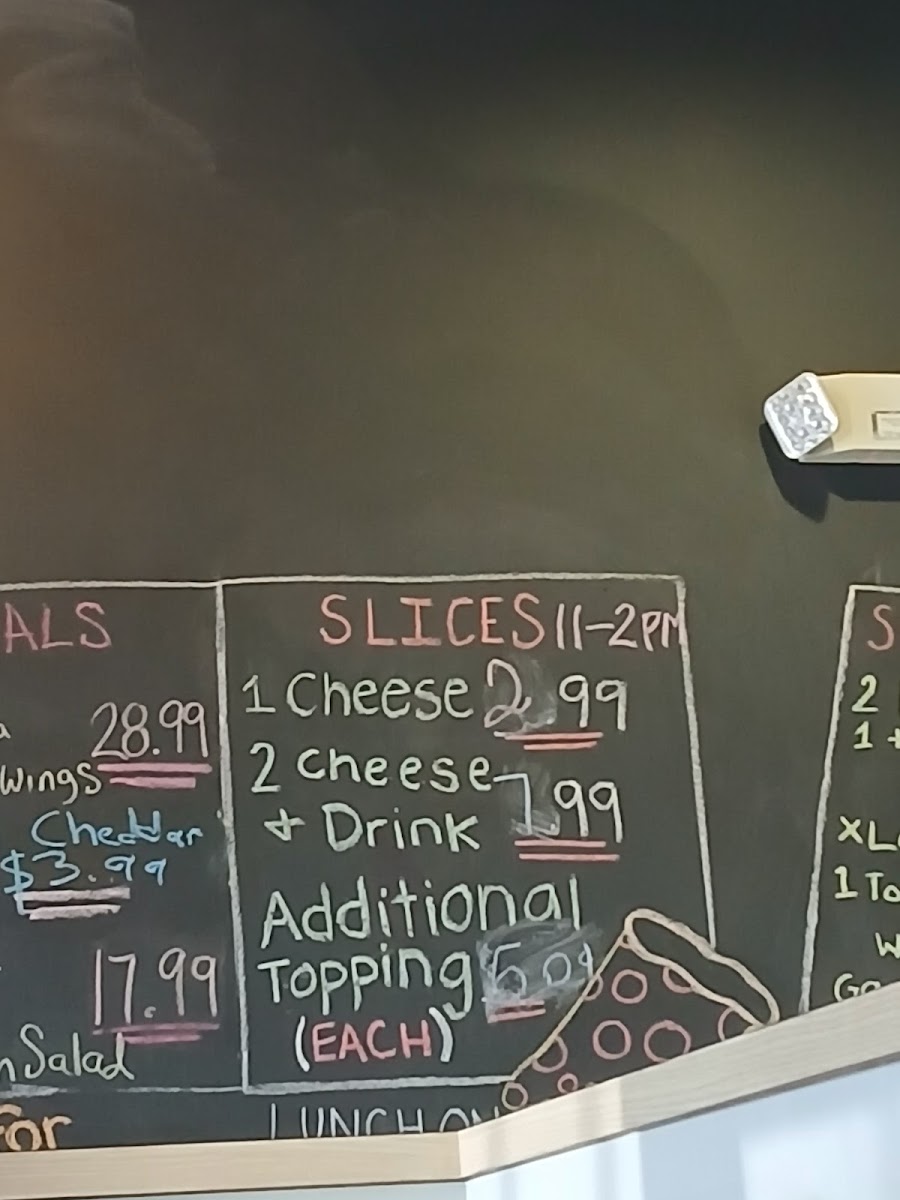 ALS
28.99
Wings
Cheddar
$3.99
17.99
Salad
For
SLICES 11-2PM
1 Cheese 2.99
2 cheese
+ Drink 7.99
Additional
Topping
(EACH)
LUNCH ON
S
2
1 +
XL
1 To
W